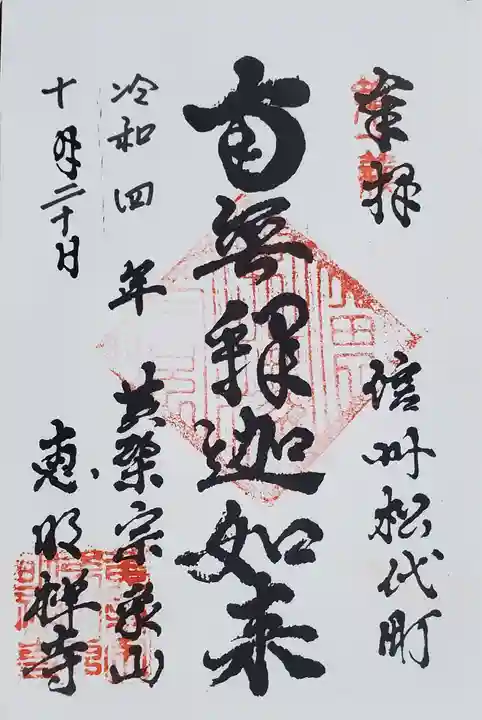 奉拝
信州松代町
南無釈迦如来
令和四年
黄檗宗象山
恵明禅寺
十月二十日